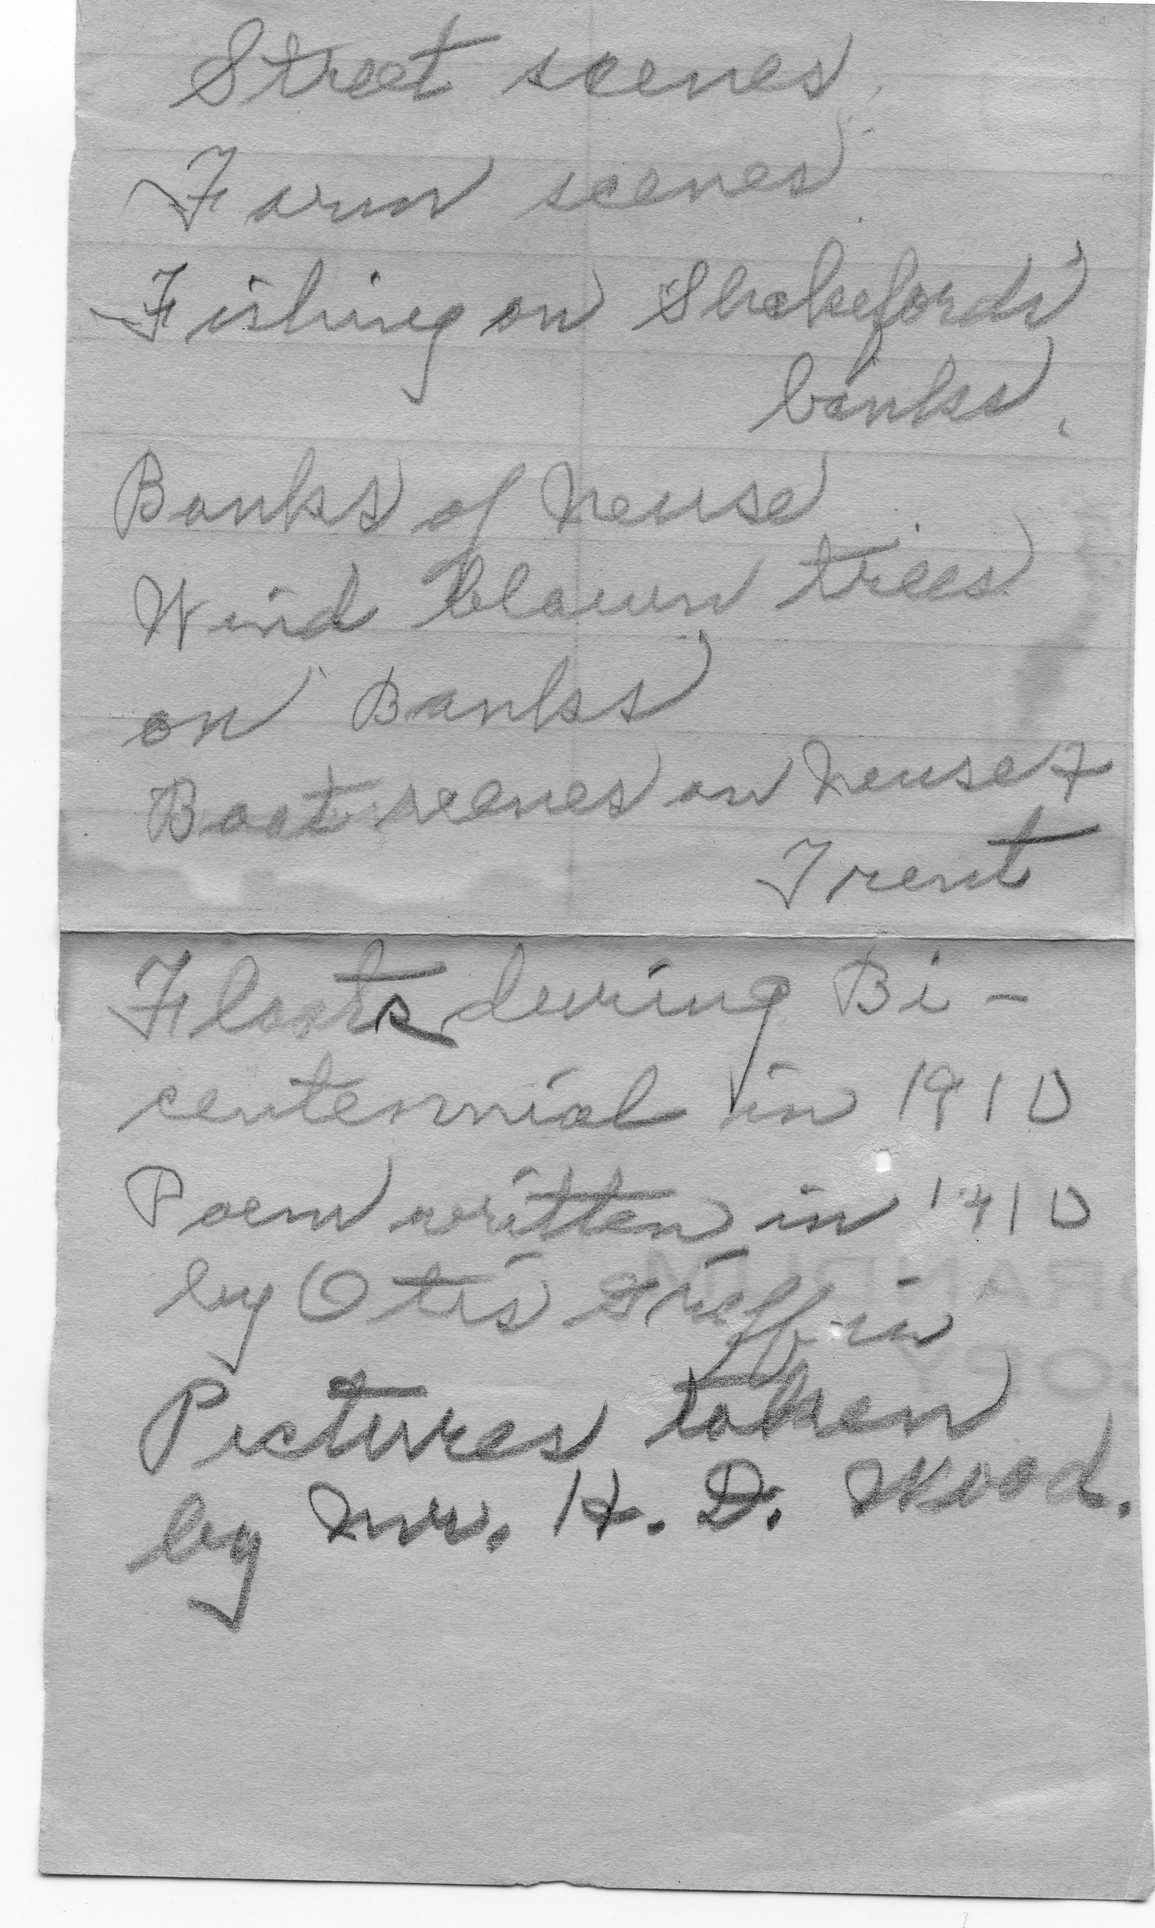 Street scenes
Farm scenes
Fishing on Shakefords'
banks.
Banks of Neuse
Wind blown trees
on Banks
Boat scenes on Neuse +
Trent
Floats during Bi-
centennial in 1910
Poem written in 1910
by Otis Griffin
Pictures taken
by Mr. H. D. Wood.